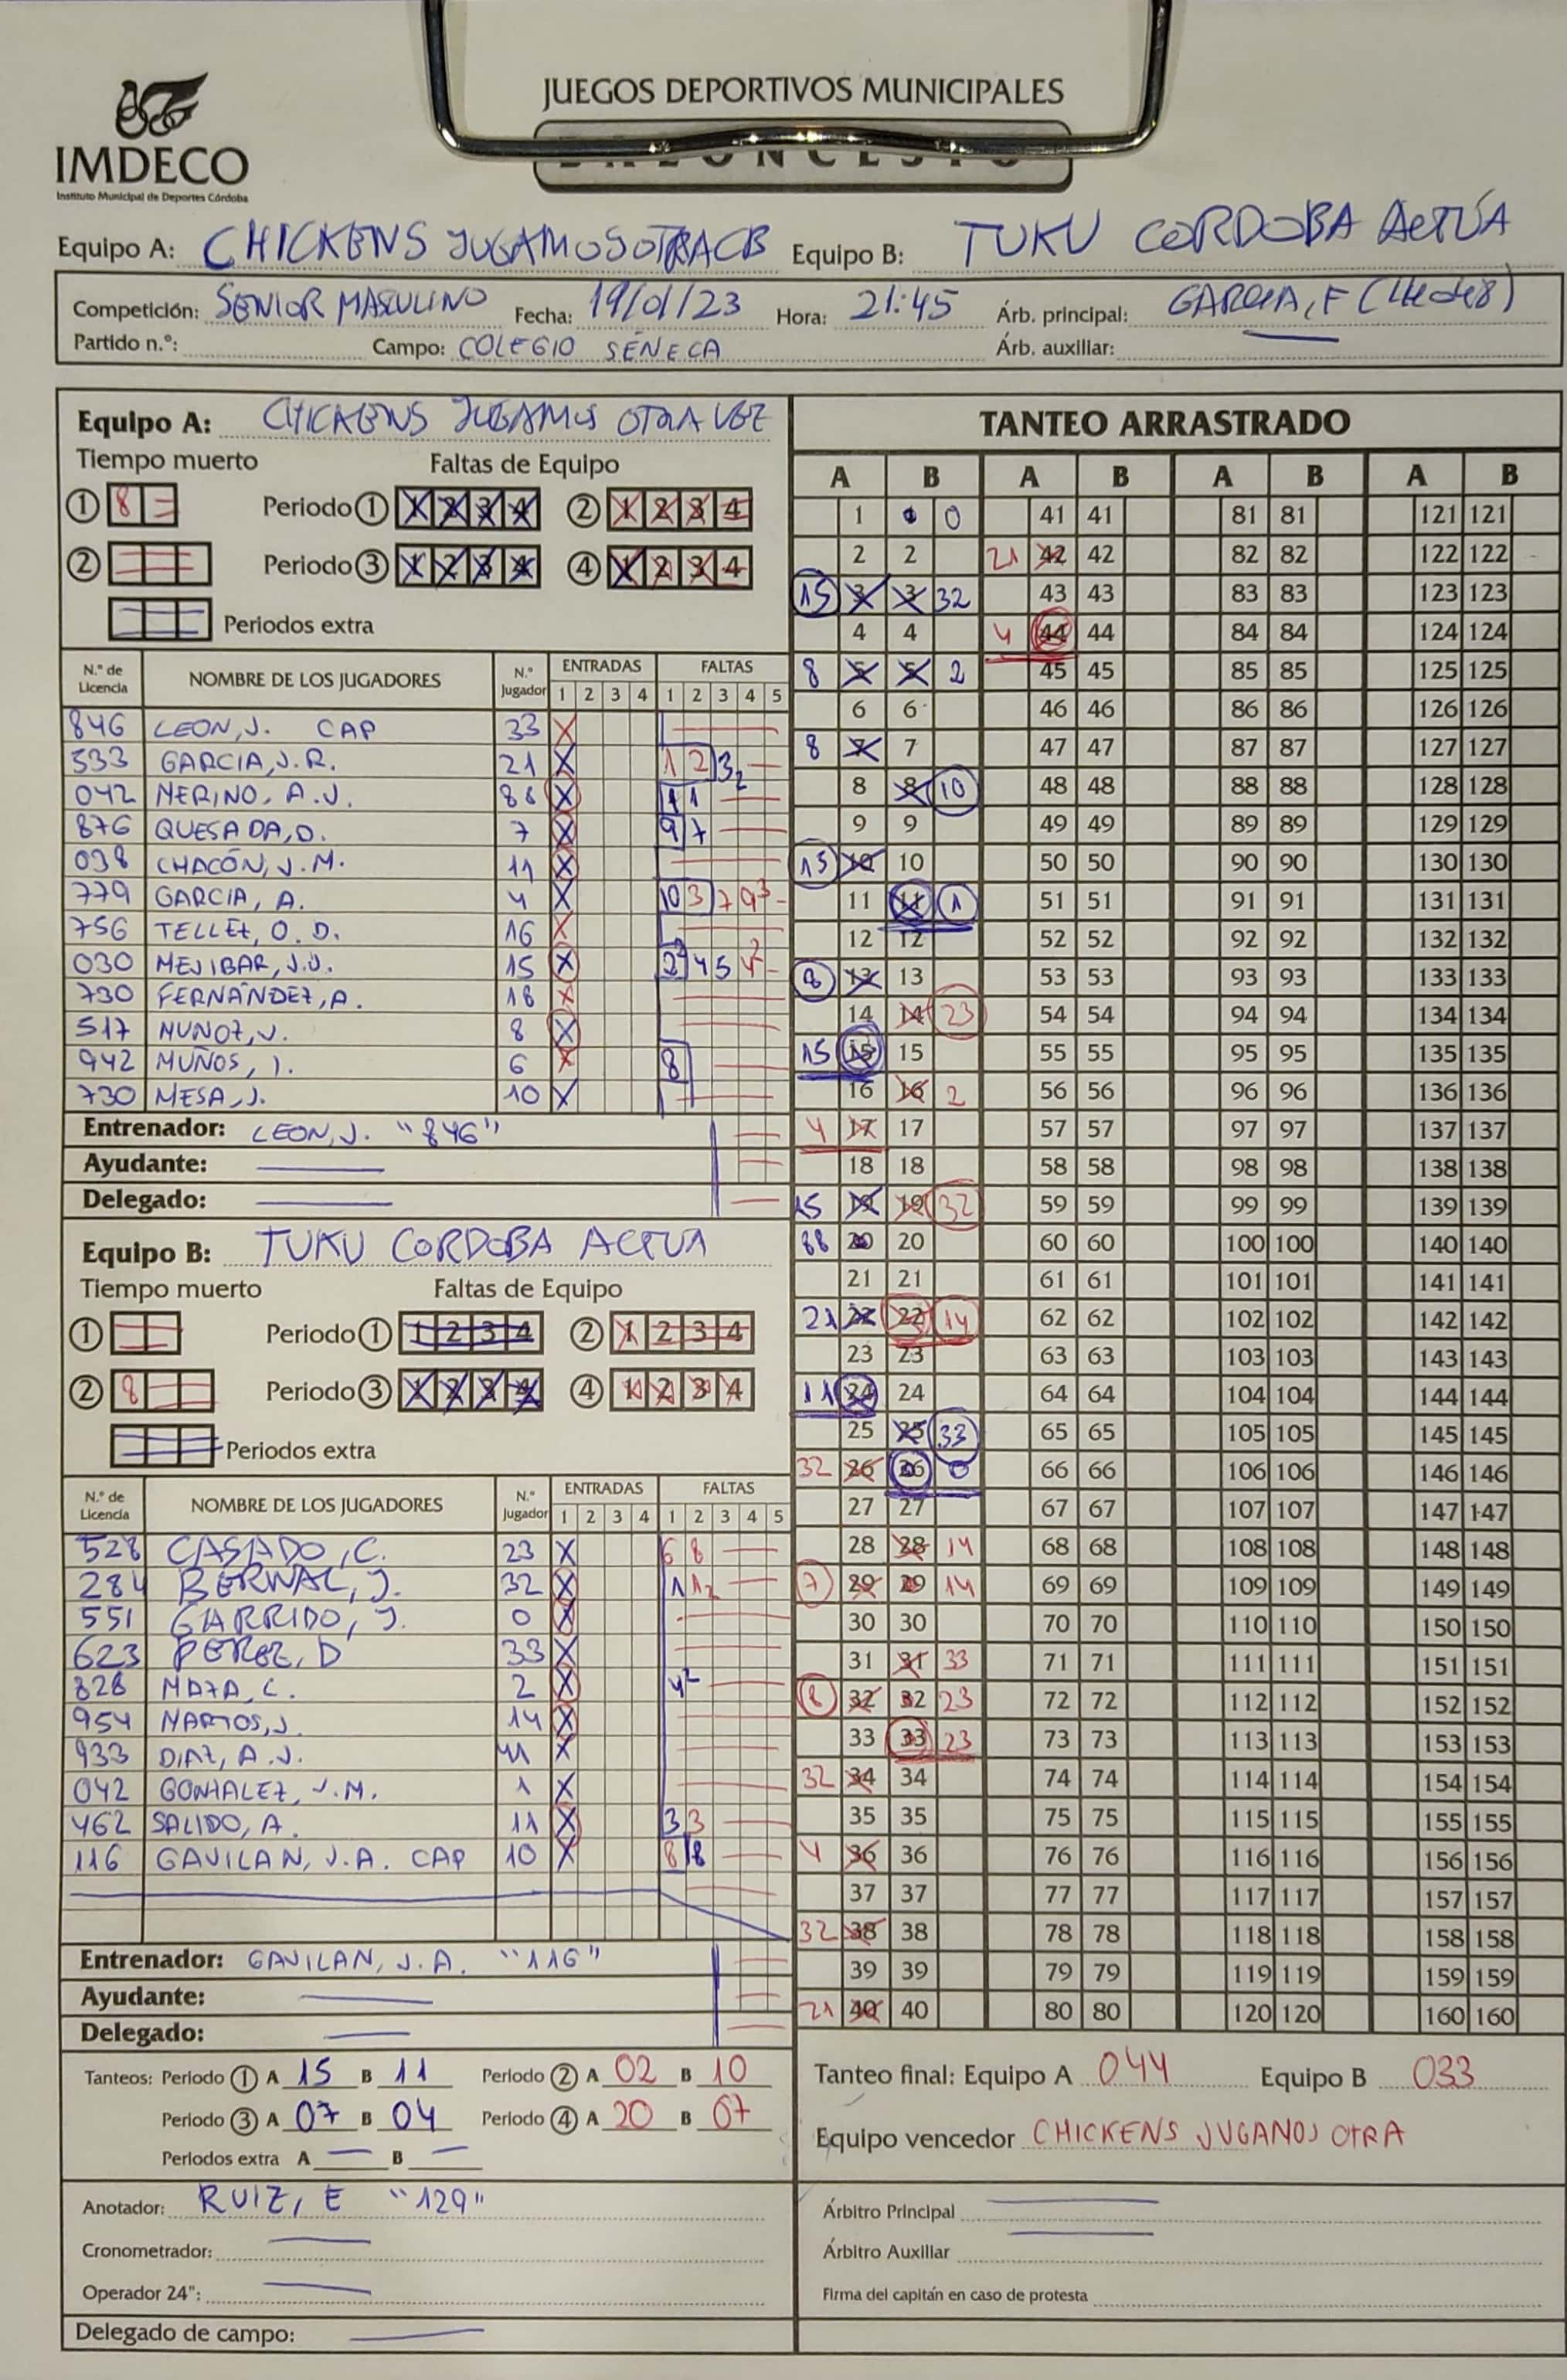 IMDECO
Instituto Municipal de Deportes Córdoba
JUEGOS DEPORTIVOS MUNICIPALES
Equipo A: CHICKENS JUGAMOSOTRACB Equipo B: TUKU CORDOBA ACTÚA
Competición: SENIOR MASCULINO Fecha: 19/01/23 Hora: 21:45 Árb. principal: GARCIA, F
Partido n.º: Campo: COLEGIO SÉNECA Árb. auxiliar:
Equipo A: CHICKENS JUGAMOS OTRA VEZ
Tiempo muerto Faltas de Equipo
1 8 = Periodo 1 1 2 3 4 2 1 2 3 4
2 Periodo 3 1 2 3 4 4 1 2 3 4
Periodos extra
N.º de Licencia NOMBRE DE LOS JUGADORES N.º Jugador ENTRADAS 1 2 3 4 FALTAS 1 2 3 4 5
846 LEON, J. CAP 33 X
533 GARCIA, J.R. 21 X 1 2 3 2
042 MERINO, A.J. 88 X 1 1
876 QUESADA, D. 7 X 9 7
038 CHACÓN, J.M. 11 X
779 GARCIA, A. 4 X 10 3 7 9 3
756 TELLEZ, O.D. 16 X
030 MEJIBAR, J.J. 15 X 2 2 4 5 4 2
730 FERNÁNDEZ, A. 18 X
517 MUÑOZ, J. 8 X
942 MUÑOS, I. 6 X 8
730 MESA, J. 10 X
Entrenador: LEON, J. "846"
Ayudante:
Delegado:
Equipo B: TUKU CORDOBA ACTUA
Tiempo muerto Faltas de Equipo
1 Periodo 1 1 2 3 4 2 1 2 3 4
2 8 Periodo 3 1 2 3 4 4 1 2 3 4
Periodos extra
N.º de Licencia NOMBRE DE LOS JUGADORES N.º Jugador ENTRADAS 1 2 3 4 FALTAS 1 2 3 4 5
528 CASADO, C. 23 X 6 8
284 BERNAL, J. 32 X 1 1 2
551 GARRIDO, J. 0 X
623 PEREZ, D 33 X
828 MAZA, C. 2 X 4 2
954 MARTOS, J. 14 X
933 DIAZ, A.J. 41 X
042 GONZALEZ, J.M. 1 X
462 SALIDO, A. 11 X 3 3
116 GAVILAN, J.A. CAP 10 X 8 8
Entrenador: GAVILAN, J.A. "116"
Ayudante:
Delegado:
Tanteos: Periodo 1 A 15 B 11 Periodo 2 A 02 B 10
Periodo 3 A 07 B 04 Periodo 4 A 20 B 07
Periodos extra A B
Anotador: RUIZ, E "129"
Cronometrador:
Operador 24":
Delegado de campo:
TANTEO ARRASTRADO
A B A B A B A B
1 1 0 41 41 81 81 121 121
2 2 21 42 42 82 82 122 122
15 3 3 32 43 43 83 83 123 123
4 4 4 44 44 84 84 124 124
8 5 5 2 45 45 85 85 125 125
6 6 46 46 86 86 126 126
8 7 7 47 47 87 87 127 127
8 8 10 48 48 88 88 128 128
9 9 49 49 89 89 129 129
15 10 10 50 50 90 90 130 130
11 11 1 51 51 91 91 131 131
12 12 52 52 92 92 132 132
8 13 13 53 53 93 93 133 133
14 14 23 54 54 94 94 134 134
15 15 15 55 55 95 95 135 135
16 16 2 56 56 96 96 136 136
4 17 17 57 57 97 97 137 137
18 18 58 58 98 98 138 138
15 19 19 32 59 59 99 99 139 139
88 20 20 60 60 100 100 140 140
21 21 61 61 101 101 141 141
21 22 22 14 62 62 102 102 142 142
23 23 63 63 103 103 143 143
11 24 24 64 64 104 104 144 144
25 25 33 65 65 105 105 145 145
32 26 26 0 66 66 106 106 146 146
27 27 67 67 107 107 147 147
28 28 14 68 68 108 108 148 148
7 29 29 14 69 69 109 109 149 149
30 30 70 70 110 110 150 150
31 31 33 71 71 111 111 151 151
8 32 32 23 72 72 112 112 152 152
33 33 23 73 73 113 113 153 153
32 34 34 74 74 114 114 154 154
35 35 75 75 115 115 155 155
4 36 36 76 76 116 116 156 156
37 37 77 77 117 117 157 157
32 38 38 78 78 118 118 158 158
39 39 79 79 119 119 159 159
21 40 40 80 80 120 120 160 160
Tanteo final: Equipo A 044 Equipo B 033
Equipo vencedor CHICKENS JUGAMOS OTRA
Árbitro Principal
Árbitro Auxiliar
Firma del capitán en caso de protesta